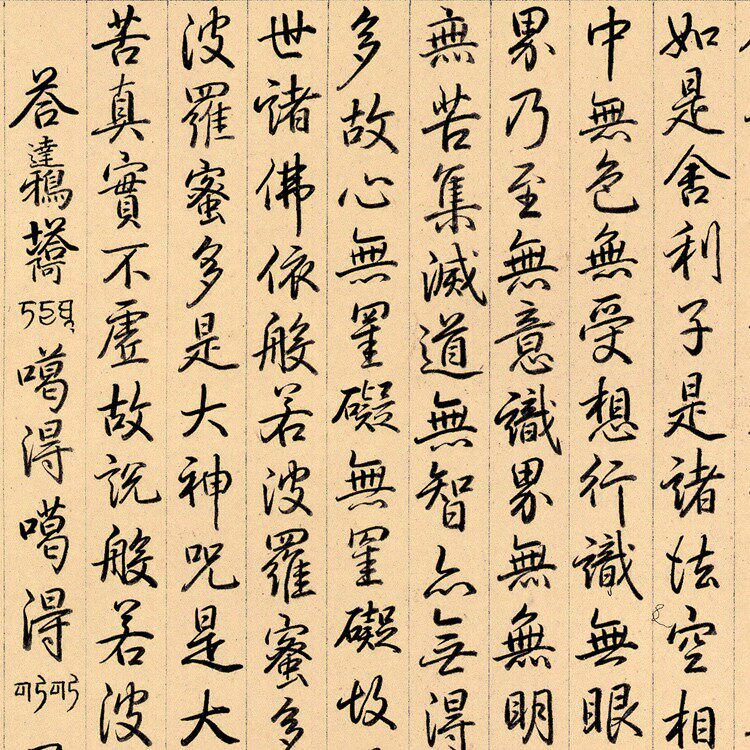 如是舍利子是諸法空相
中無色無受想行識無眼
界乃至無意識界無無明
無苦集滅道無智亦無得
多故心無罣礙無罣礙故
世諸佛依般若波羅蜜多
波羅蜜多是大神咒是大
苦真實不虛故說般若波
荅達鴉塔阿噶得噶得